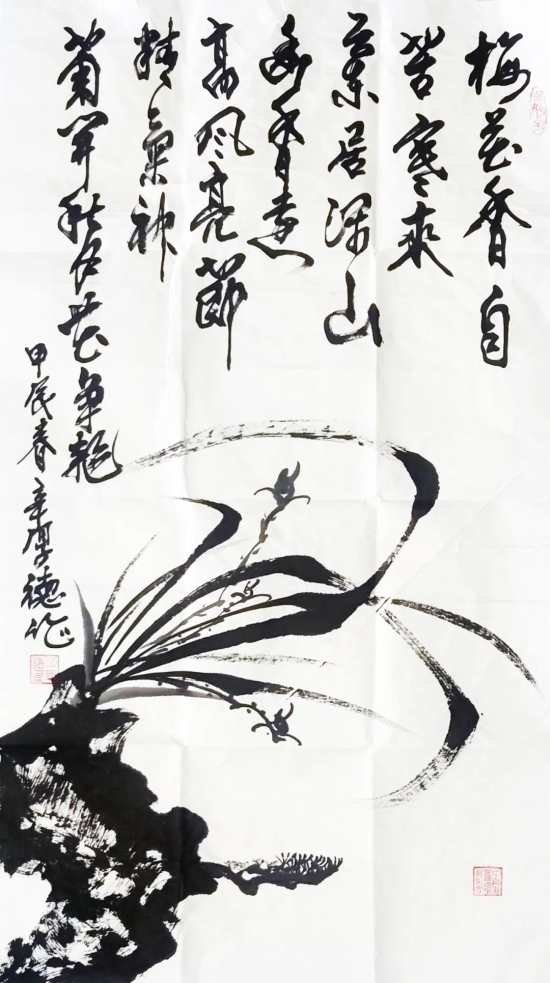 梅花香自
苦寒来
兰居深山
幽香远
高风亮节
精气神
菊开秋色花争艳
甲辰春 辛厚德作